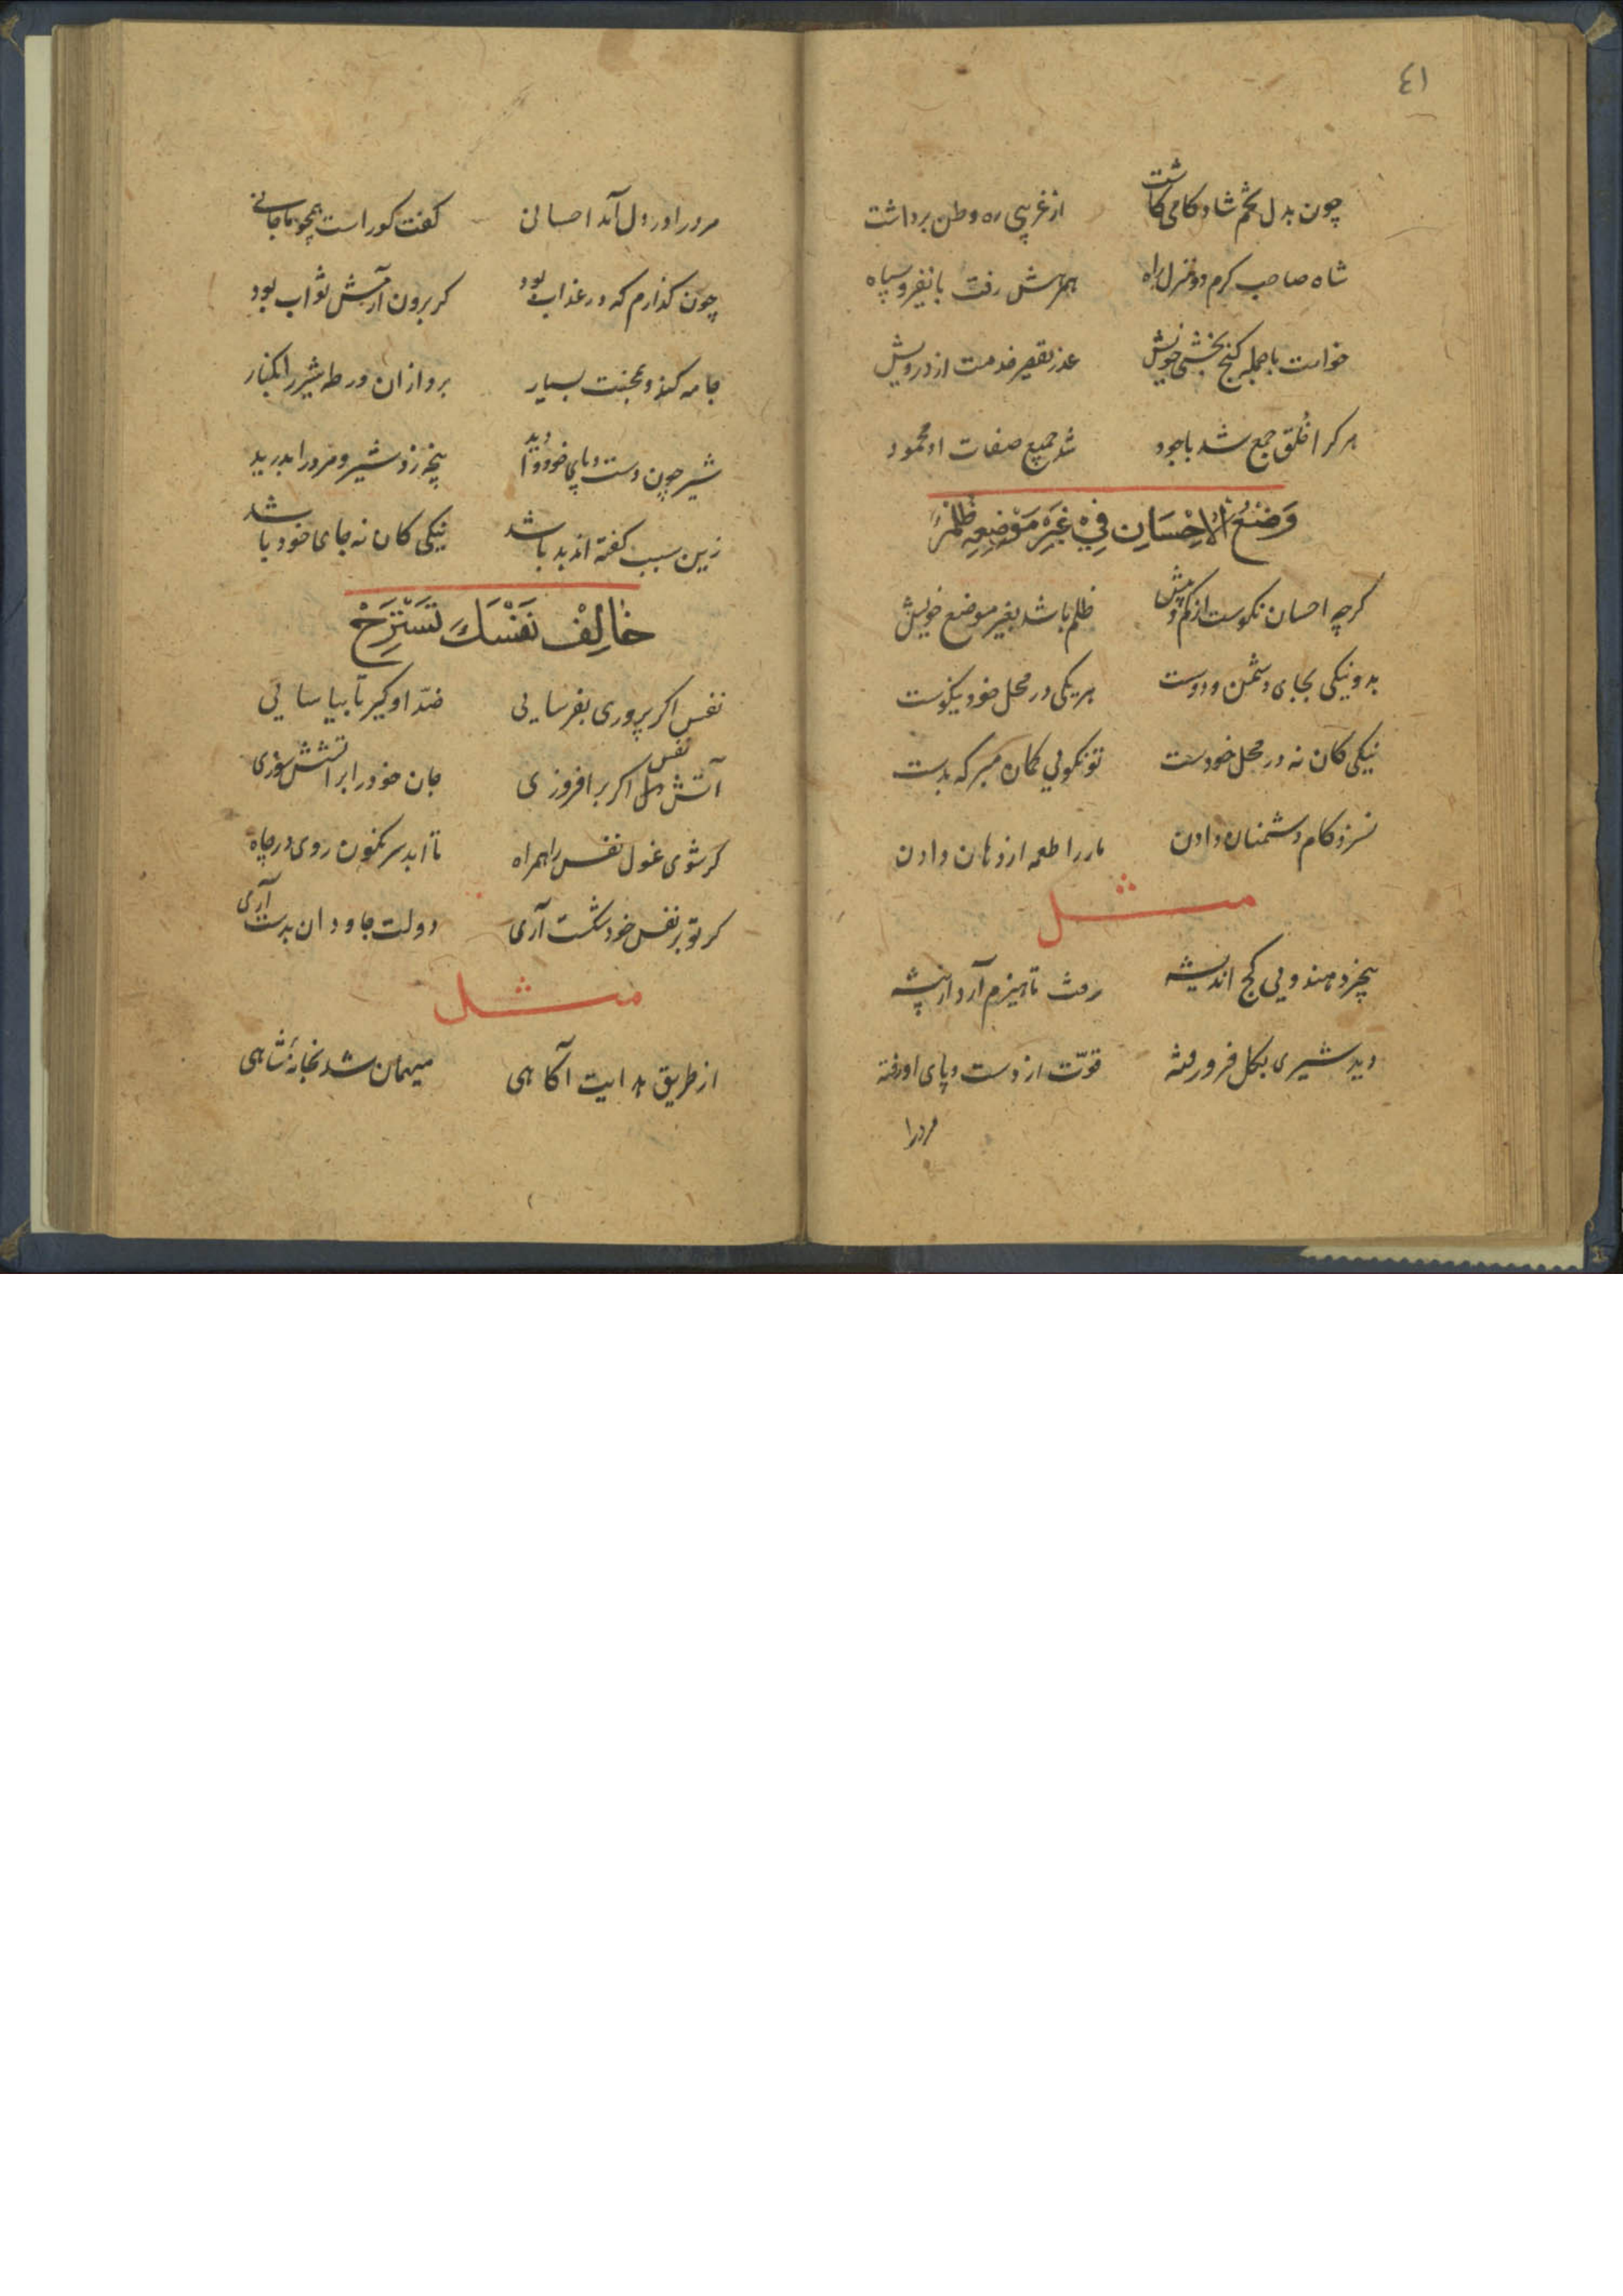 ٤١
چون بدل تخم شادکامی کاشت از غریبی ره وطن برداشت
شاه صاحب کرم دو منزل راه همرهش رفت با نفیر و سپاه
خواست با جمله کنج بخشی خویش عذر تقصیر خدمت از درویش
هرکرا خُلق جمع شد با جود شد جمیع صفات او محمود
وَضْعُ الْاِحْسَانِ فِيْ غَيْرِ مَوْضِعِهِ ظُلْمٌ
کرچه احسان نکوست از کم و بیش ظلم باشد بغیر موضع خویش
بد و نیکی بجای دشمن و دوست هر یکی در محل خود نیکوست
نیکی کان نه در محل خودست تو نکویی کمان مبر که بدست
نسزد کام دشمنان دادن مار را طعمه از دهان دادن
مثل
بیخرد هندویی کج اندیشه رفت تا هیزم آرد از بیشه
دید شیری بکل فرو رفته قوّت از دست و پای او رفته
مرد را
مرد را در دل آمد احسانی کفت کوراست همچو ما جانی
چون کذارم که در عذاب بود کر برون آرمش ثواب بود
جامه کند و بجنبت بسیار برد از ان ورطه شیر را بکنار
شیر چون دست و پای خود وا دید پنجه زد شیر و مرد را بدرید
زین سبب کفته اند بد باشد نیکی کان نه جای خود باشد
خَالِفْ نَفْسَكَ تَسْتَرِحْ
نفس اکر پروری بفرسایی ضدّ او کیر تا بیاسایی
آتش نفس اکر برافروزی جان خود را بر آتشش سوزی
کر شوی غول نفس را همراه تا ابد سرنکون روی در چاه
کر تو بر نفس خود شکست آری دولت جاودان بدست آری
مثل
از طریق هدایت آکاهی میهمان شد بخانهٔ شاهی